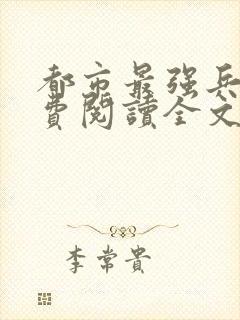 都市最强兵
費閱讀全文
李常貴